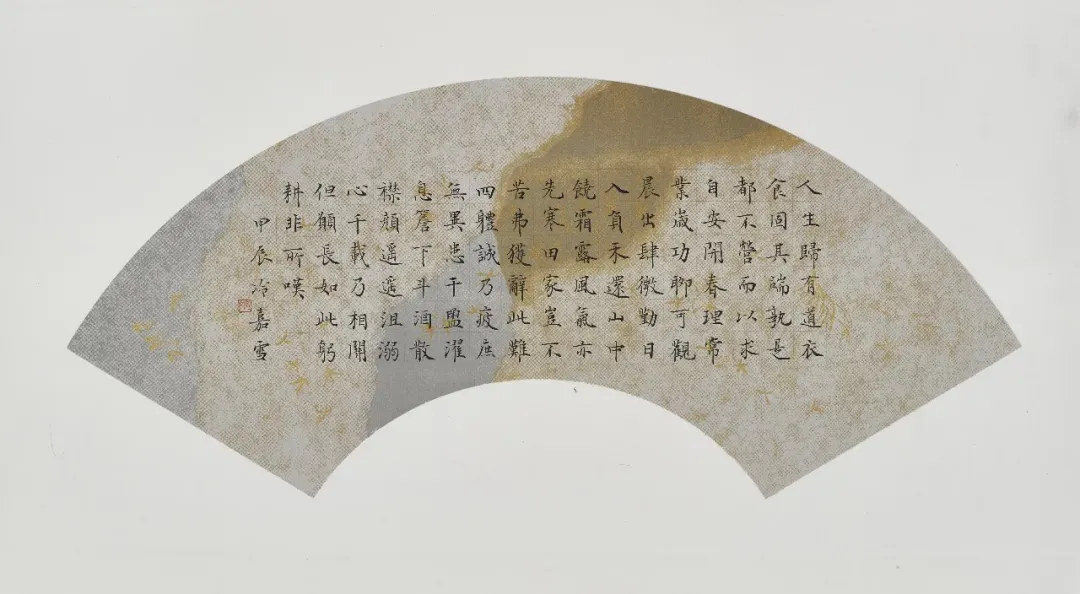 人生歸有道衣
食固其端孰是
都不營而以求
自安開春理常
業歲功聊可觀
晨出肆微勤日
入負禾還山中
饒霜露風氣亦
先寒田家豈不
苦弗獲辭此難
四體誠乃疲庶
無異患干盥濯
息簷下斗酒散
襟顏遙遙沮溺
心千載乃相關
但願長如此躬
耕非所嘆
甲辰冷嘉雪